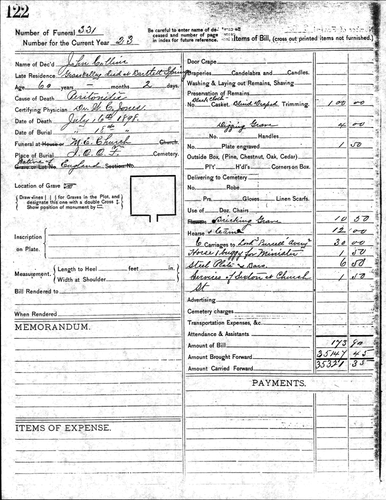 122
Number of Funeral 331
Number for the Current Year 23
Be carefully to enter name of deceased and number of page in index for future reference.
Items of Bill, (cross out printed items not furnished.)
Name of Dec'd John Collins
Late Residence died at Bartlett Springs
Age 60 years – months 2 days.
Cause of Death Peritonitis
Certifying Physician Dr W. C. Jones
Date of Death July 16th 1898.
Date of Burial " 18th "
Funeral at House M. E. Church Church.
Place of Burial I. O. O. F. Cemetery.
Native of England
Grave or Lot No. Section No.
Location of Grave
Draw lines for Graves in the Plot, and designate this one with a double Cross
Show position of monument by
Inscription on Plate.
Measurement, Length to Heel feet in
Width at Shoulder in
Bill Rendered to
When Rendered
MEMORANDUM.
ITEMS OF EXPENSE.
Door Crape
Draperies, Candelabra and Candles.
Washing & Laying out Remains, Shaving
Preservation of Remains
Black Cloth
Casket, Draped Trimming 100 00
Digging Grave 4 00
No. Handles
No. Plate engraved 1 50
Outside Box, (Pine, Chestnut, Oak, Cedar)
PIY H'd's Corner's on Box
Delivering to Cemetery
No. Robe
Prs. Gloves Linen Scarfs.
Use of Doz. Chairs
Bricking Grave 10 50
Hearse 12 00
6 Carriages to 30 00
Horse & buggy for Minister 1 50
Steel Plate & Bars 6 50
Services of Sexton at Church 1 50
Advertising
Cemetery charges
Transportation Expenses, &c
Attendance & Assistants
Amount of Bill 173 90
Amount Brought Forward 35147 45
Amount Carried Forward 35321 35
PAYMENTS.